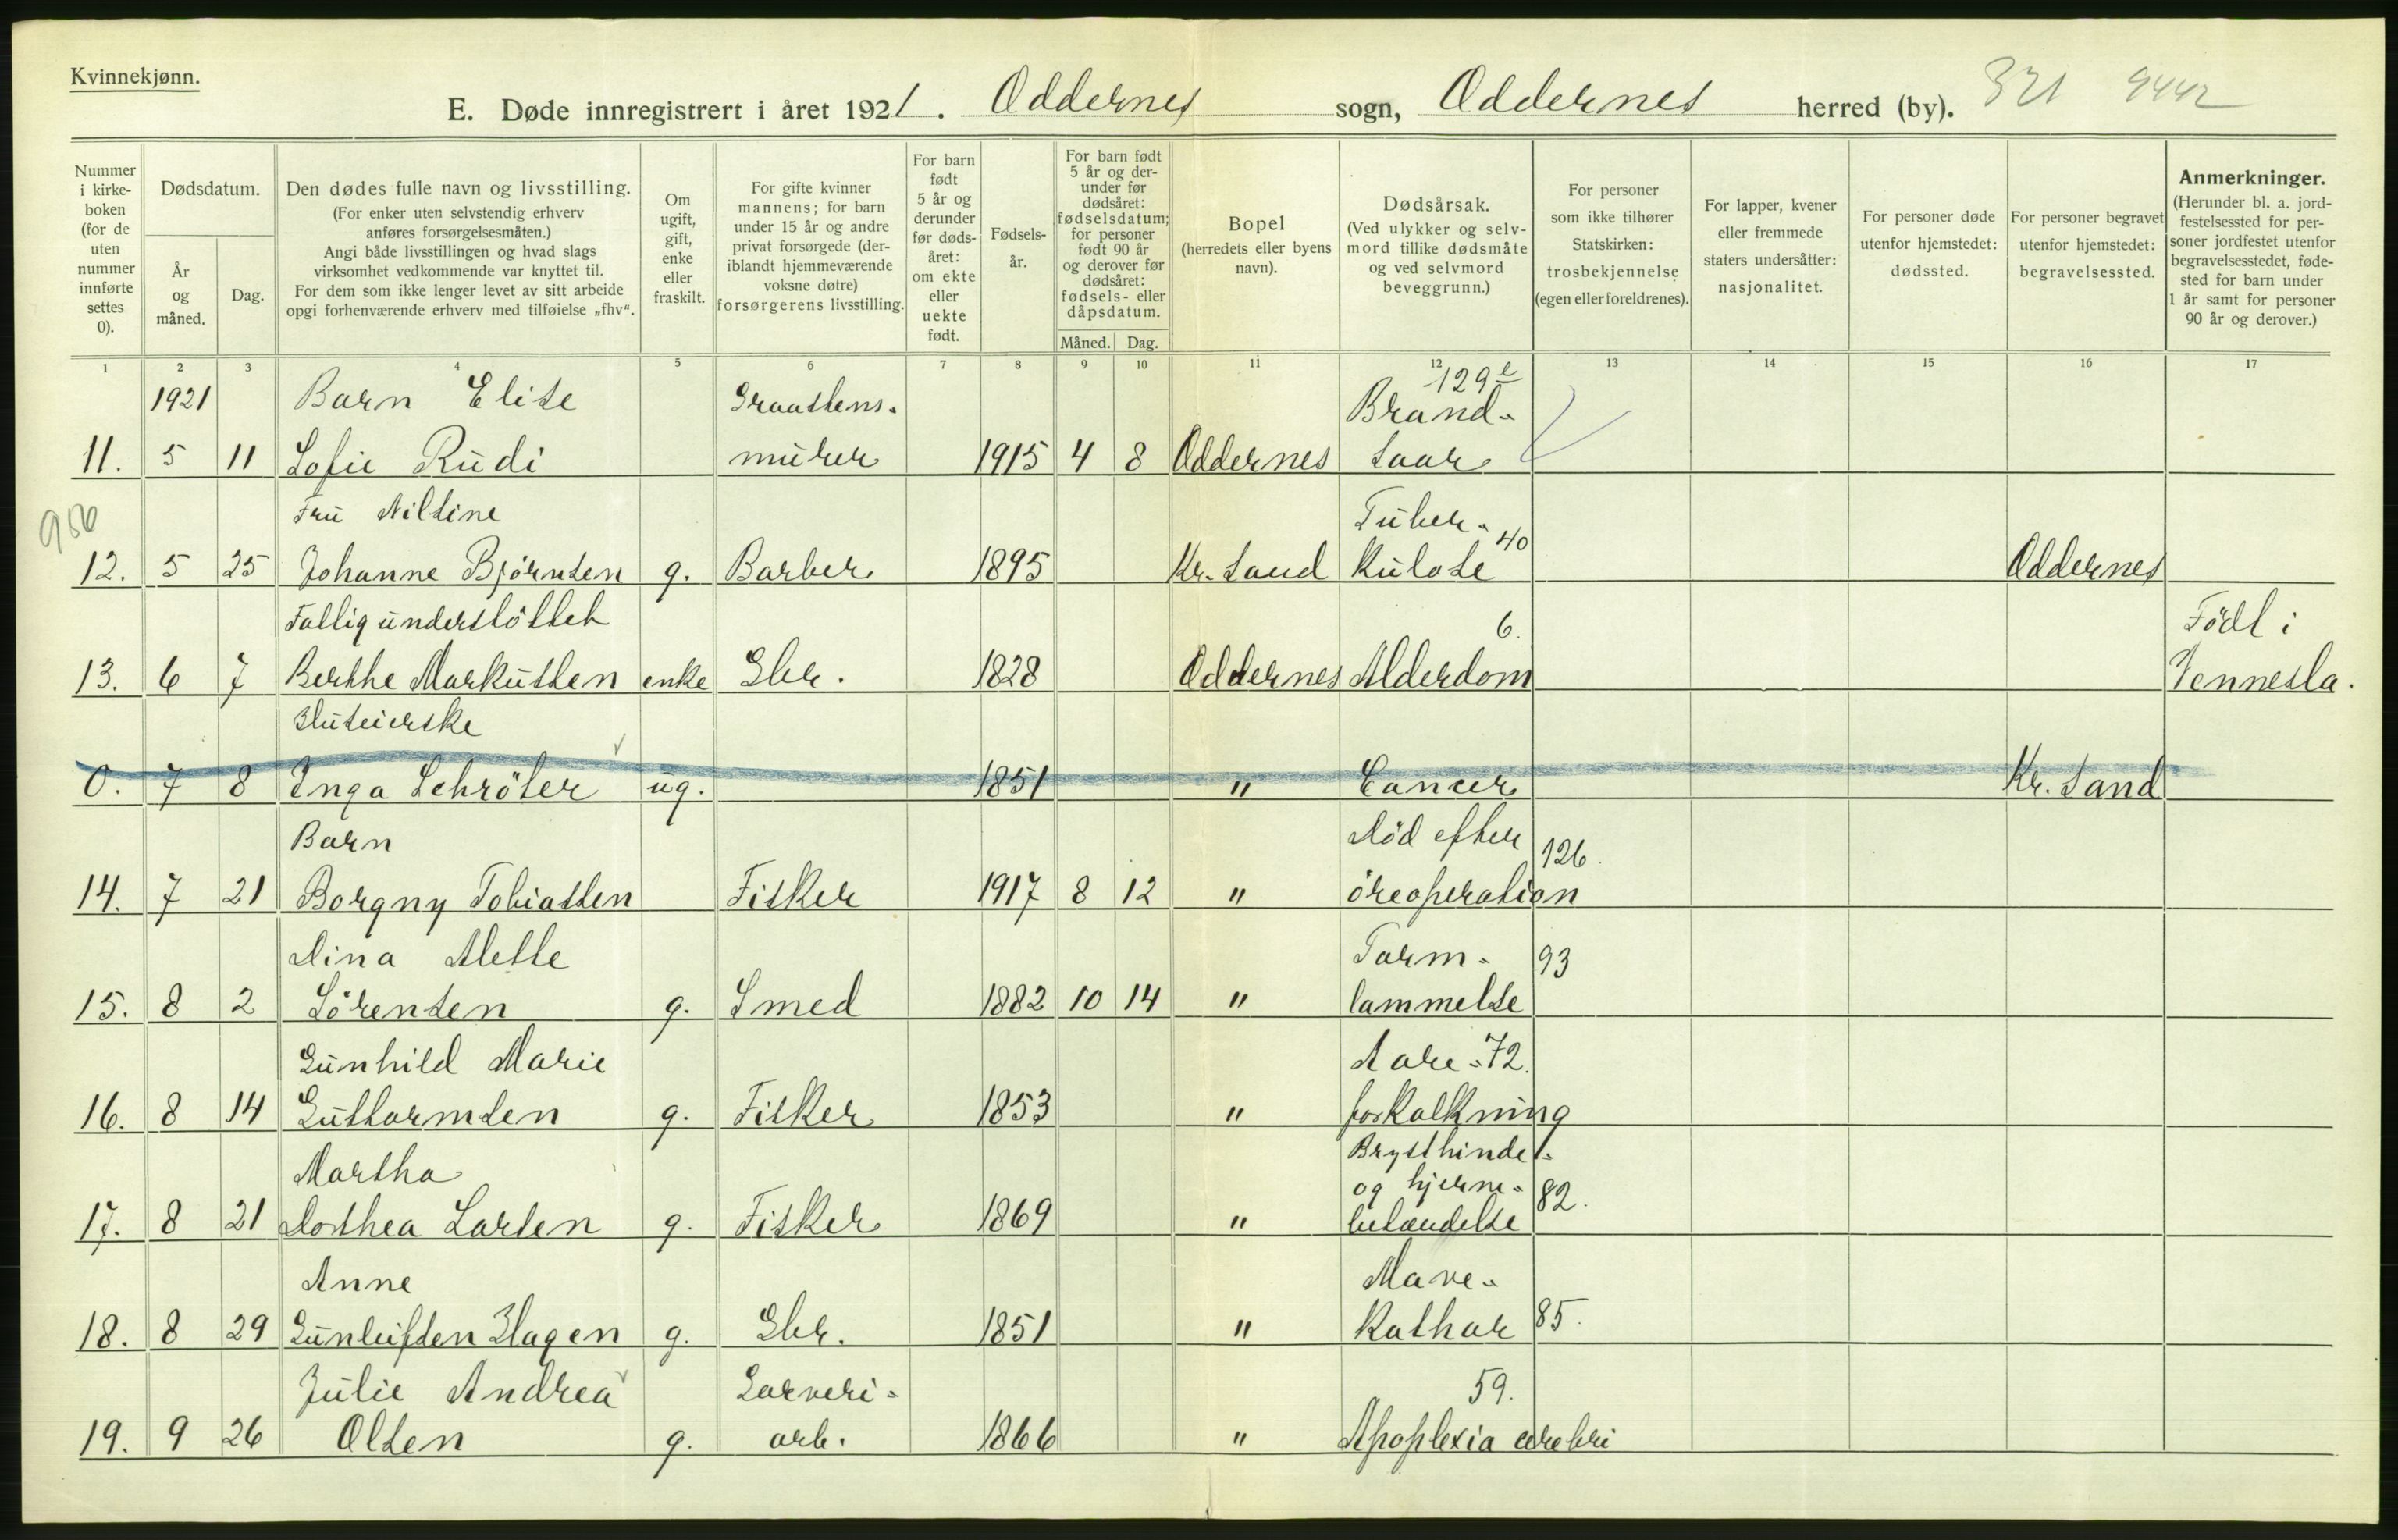 Kvinnekjønn.
E. Døde innregistrert i året 1921. Oddernes sogn, Oddernes herred (by). 321 9442
Nummer i kirke-boken (for de uten nummer innførte settes 0).
Dødsdatum.
År og måned.
Dag.
Den dødes fulle navn og livsstilling.
(For enker uten selvstendig erhverv
anføres forsørgelsesmåten.)
Angi både livsstillingen og hvad slags
virksomhet vedkommende var knyttet til.
For dem som ikke lenger levet av sitt arbeide
opgi forhenværende erhverv med tilføielse „fhv“.
Om ugift, gift, enke eller fraskilt.
For gifte kvinner
mannens; for barn
under 15 år og andre
privat forsørgede (der-
iblandt hjemmeværende
voksne døtre)
forsørgerens livsstilling.
For barn født 5 år og derunder før døds-året: om ekte eller uekte født.
Fødsels-år.
For barn født
5 år og der-
under før
dødsåret:
fødselsdatum;
for personer
født 90 år
og derover før
dødsåret:
fødsels- eller
dåpsdatum.
Måned. Dag.
Bopel
(herredets eller byens
navn).
Dødsårsak.
(Ved ulykker og selv-
mord tillike dødsmåte
og ved selvmord
beveggrunn.)
For personer
som ikke tilhører
Statskirken:
trosbekjennelse
(egen eller foreldrenes).
For lapper, kvener
eller fremmede
staters undersåtter:
nasjonalitet.
For personer døde
utenfor hjemstedet:
dødssted.
For personer begravet
utenfor hjemstedet:
begravelsessted.
Anmerkninger.
(Herunder bl. a. jord-
festelsessted for per-
soner jordfestet utenfor
begravelsesstedet, føde-
sted for barn under
1 år samt for personer
90 år og derover.)
1 2 3 4 5 6 7 8 9 10 11 12 13 14 15 16 17
1921 Barn Elise Graastens- Brand- 129 e
11. 5 11 Sofie Rudi murer 1915 4 8 Oddernes saar
956 Fru Nilsine Tuber- 40
12. 5 25 Johanne Bjørnsen g. Barber 1895 Kr. Sand kulose Oddernes
Fattigunderstöttet 6. Födt i
13. 6 7 Berthe Markussen enke Gbr. 1828 Oddernes Alderdom Vennesla.
Huseierske
0. 7 8 Inga Schröter ug. 1851 " Cancer Kr. Sand
Barn Död efter 126.
14. 7 21 Borgny Tobiassen Fisker 1917 8 12 " öreoperation
Dina Alette Tarm- 93
15. 8 2 Sörensen g. Smed 1882 10 14 " lammelse
Gunhild Marie Aare- 72.
16. 8 14 Guttormsen g. Fisker 1853 " forkalkning
Martha Brysthinde-
og hjerne- 82.
17. 8 21 Dorthea Larsen g. Fisker 1869 " betændelse
Anne Mave-
18. 8 29 Gunleifsen Hagen g. Gbr. 1851 " kathar 85.
Julie Andrea Garveri- 59.
19. 9 26 Olsen g. arb. 1866 " Apoplexia cerebri